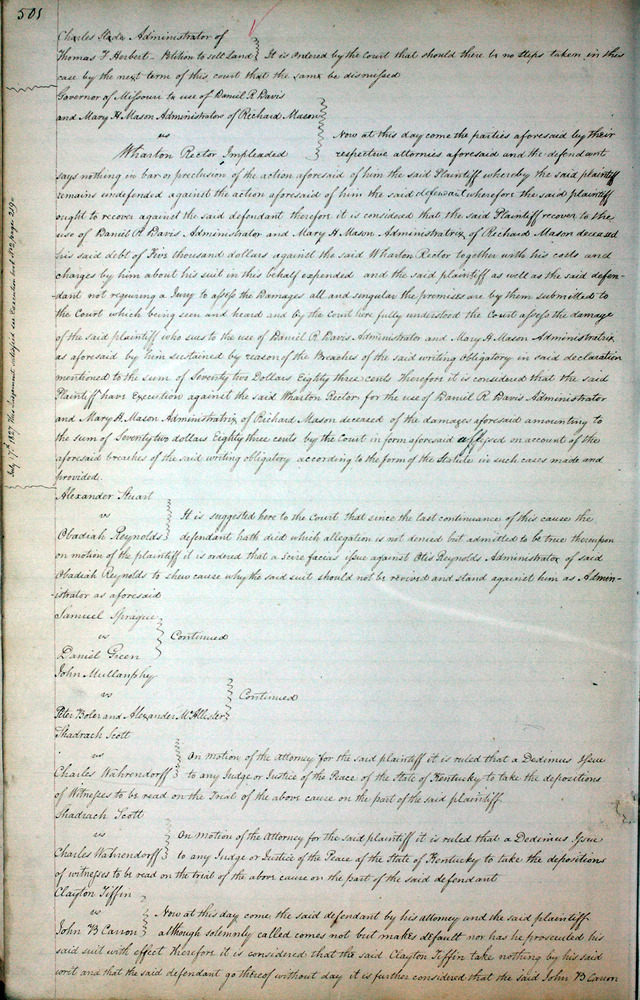 501
Charles Slade Administrator of
Thomas T Herbert - Petition to sell Land } It is ordered by the Court that should there be no steps taken in this
case by the next term of this court that the same be dismissed
Governor of Missouri to use of Daniel R Davis
and Mary H Mason Administrators of Richard Mason
vs
Wharton Rector Impleaded
Now at this day come the parties aforesaid by their
respective attornies aforesaid and the defendant
says nothing in bar or preclusion of the action aforesaid of him the said Plaintiff whereby the said plaintiff
remains undefended against the action aforesaid of him the said defendant wherefore the said plaintiff
ought to recover against the said defendant therefor it is considered that the said Plaintiff recover to the
use of Daniel R Davis Administrator and Mary H Mason Administratrix of Richard Mason deceased
his said debt of Five thousand dollars against the said Wharton Rector together with his costs and
charges by him about his suit in this behalf expended and the said plaintiff as well as the said defen-
-dant not requiring a Jury to assess the Damages all and singular the premises are by them submitted to
the Court which being seen and heard and by the court here fully understood the Court assess the damage
of the said plaintiff who sues to the use of Daniel R Davis Administrator and Mary H Mason Administratrix
as aforesaid by him sustained by reason of the Breaches of the said writing Obligatory in said declaration
mentioned to the sum of Seventy two Dollars Eighty three cents Therefore it is considered that the said
Plaintiff have Execution against the said Wharton Rector for the use of Daniel R Davis Administrator
and Mary H. Mason Administratrix of Richard Mason deceased of the damages aforesaid amounting to
the sum of Seventy two dollars Eighty three cents by the Court in form aforesaid assessed on account of the
aforesaid breaches of the said writing obligatory according to the form of the Statute in such cases made and
provided.
July 17th 1827 This Judgement satisfied see Execution book No 2 page 219
Alexander Stuart
vs
Obadiah Reynolds
It is suggested here to the Court that since the last continuance of this cause the
defendant hath died which allegation is not denied but admitted to be true thereupon
on motion of the plaintiff it is ordered that a Scire facias issue against Otis Reynolds Administrator of said
Obadiah Reynolds to shew cause why the said suit should not be revived and stand against him as Admin-
-istrator as aforesaid
Samuel Sprague
vs } Continued
Daniel Green
John Mullanphy
vs } Continued
Peter Boler and Alexander McAllister
Shadrach Scott
vs
Charles Wahrendorff
On motion of the Attorney for the said plaintiff it is ruled that a Dedimus Issue
to any Judge or Justice of the Peace of the State of Kentucky to take the depositions
of Witnesses to be read on the Trial of the above cause on the part of the said plaintiff.
Shadrach Scott
vs
Charles Wahrendorff
On motion of the Attorney for the said plaintiff it is ruled that a Dedimus Issue
to any Judge or Justice of the Peace of the State of Kentucky to take the depositions
of witnesses to be read on the trial of the above cause on the part of the said defendant
Clayton Tiffin
vs
John B Carron
Now at this day come the said defendant by his attorney and the said plaintiff
although solemnly called comes not but makes default nor has he prosecuted his
said suit with effect Therefore it is considered that the said Clayton Tiffin take nothing by his said
writ and that the said defendant go thereof without day it is further considered that the said John B Carron